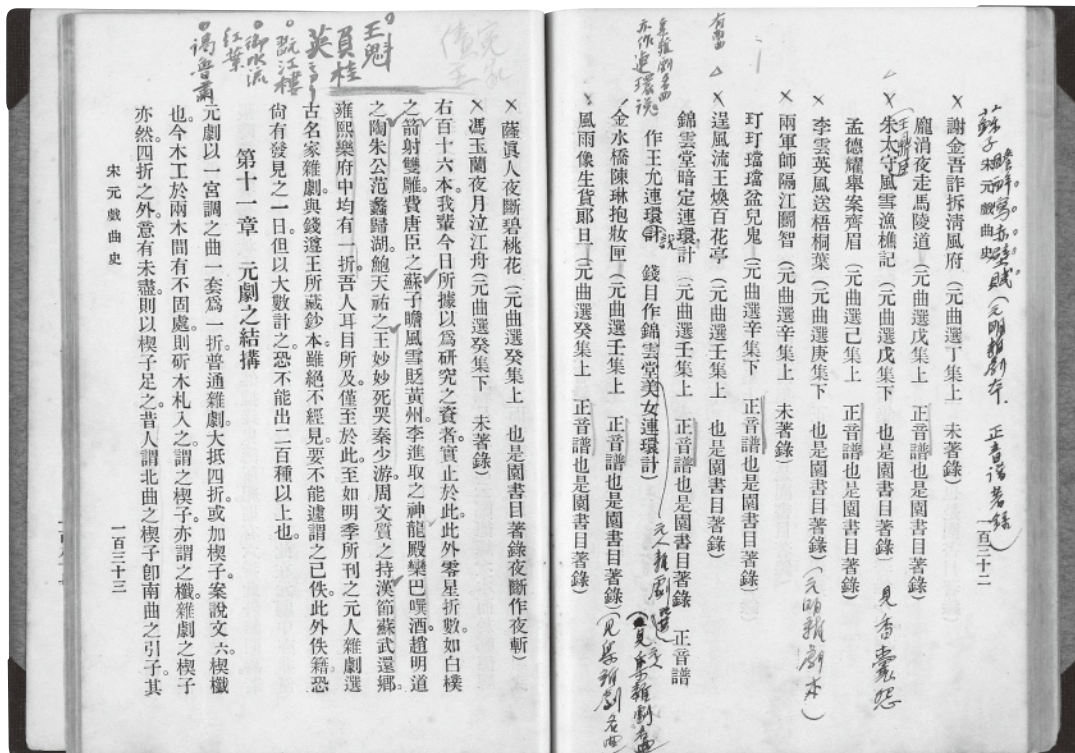 宋元戲曲史
一百三十二
謝金吾詐拆淸風府(元曲選丁集上 未著錄)
龐涓夜走馬陵道(元曲選戊集上 正音譜也是園書目著錄)
朱太守風雪漁樵記(元曲選戊集下 也是園書目著錄)
見香囊怨
孟德耀舉案齊眉(元曲選己集上 正音譜也是園書目著錄)
李雲英風送梧桐葉(元曲選庚集下 也是園書目著錄)
(元明雜劇本)
兩軍師隔江鬭智(元曲選辛集上 未著錄)
玎玎璫璫盆兒鬼(元曲選辛集下 正音譜也是園書目著錄)
逞風流王煥百花亭(元曲選壬集上 也是園書目著錄)
錦雲堂暗定連環計(元曲選壬集上 正音譜也是園書目著錄 正音譜
作王允連環計 錢目作錦雲堂美女連環計)
金水橋陳琳抱妝匣(元曲選壬集上 正音譜也是園書目著錄)
風雨像生貨郞旦(元曲選癸集上 正音譜也是園書目著錄)
薩眞人夜斷碧桃花(元曲選癸集上 也是園書目著錄夜斷作夜斬)
馮玉蘭夜月泣江舟(元曲選癸集下 未著錄)
右百十六本。我輩今日所據以爲研究之資者。實止於此。此外零星折數。如白樸
之箭射雙雕。費唐臣之蘇子瞻風雪貶黃州。李進取之神龍殿欒巴噀酒。趙明道
之陶朱公范蠡歸湖。鮑天祐之王妙妙死哭秦少游。周文質之持漢節蘇武還鄕。
雍熙樂府中均有一折。吾人耳目所及。僅至於此。至如明季所刊之元人雜劇選
古名家雜劇。與錢遵王所藏鈔本。雖絕不經見。要不能遽謂之已佚。此外佚籍。恐
尙有發見之一日。但以大數計之。恐不能出二百種以上也。
第十一章 元劇之結搆
元劇以一宮調之曲一套爲一折。普通雜劇。大抵四折。或加楔子。案說文六。楔櫼
也。今木工於兩木間有不固處。則斫木札入之。謂之楔子。亦謂之櫼。雜劇之楔子
亦然。四折之外。意有未盡。則以楔子足之。昔人謂北曲之楔子。卽南曲之引子。其
宋元戲曲史
一百三十三
王魁
紅葉
御水流